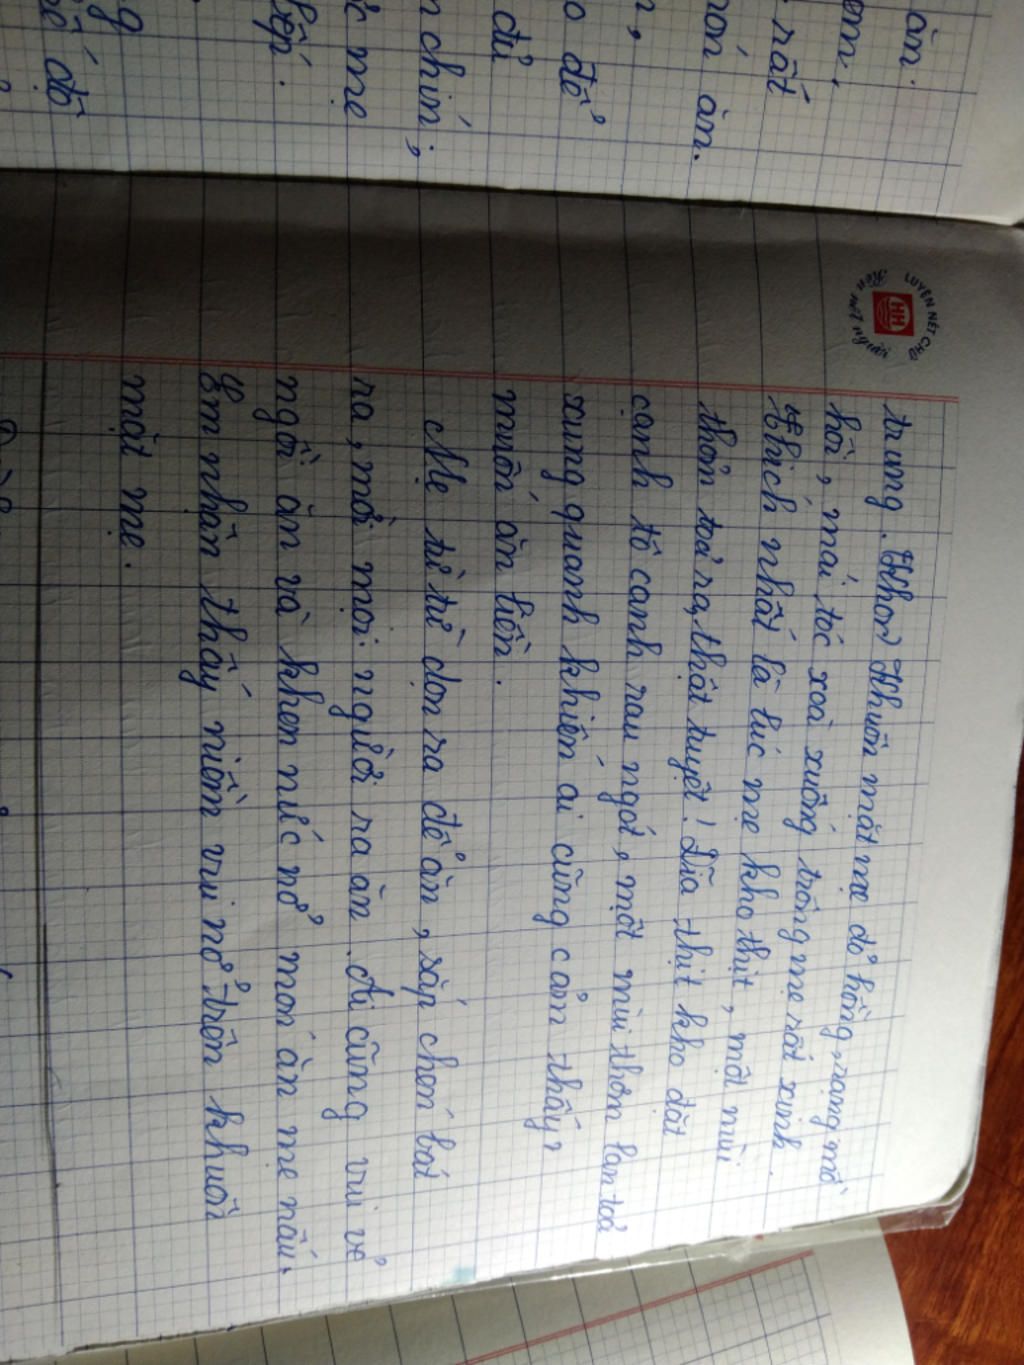 ăn.
em,
rất
món ăn.
n,
o để
đủ
n chín ;
c mẹ
bếp.
g
bố đỡ
LUYỆN NÉT CHỮ
Rèn nết người
HH
trung. Khuôn mặt mẹ đỏ hồng, rạng mồ
hôi, mái tóc xoã xuống trông mẹ rất xinh.
thích nhất là lúc mẹ kho thịt, một mùi
thơm toả ra, thật tuyệt! Dĩa thịt kho đặt
cạnh tô canh rau ngót, một mùi thơm lan toả
xung quanh khiến ai cũng cảm thấy
muốn ăn liền.
Mẹ từ từ dọn ra để ăn, sắp chén bát
ra, mời mọi người ra ăn. Ai cũng vui vẻ
ngồi ăn và khen nức nở món ăn mẹ nấu.
Em nhận thấy niềm vui nở trên khuôn
mặt mẹ.